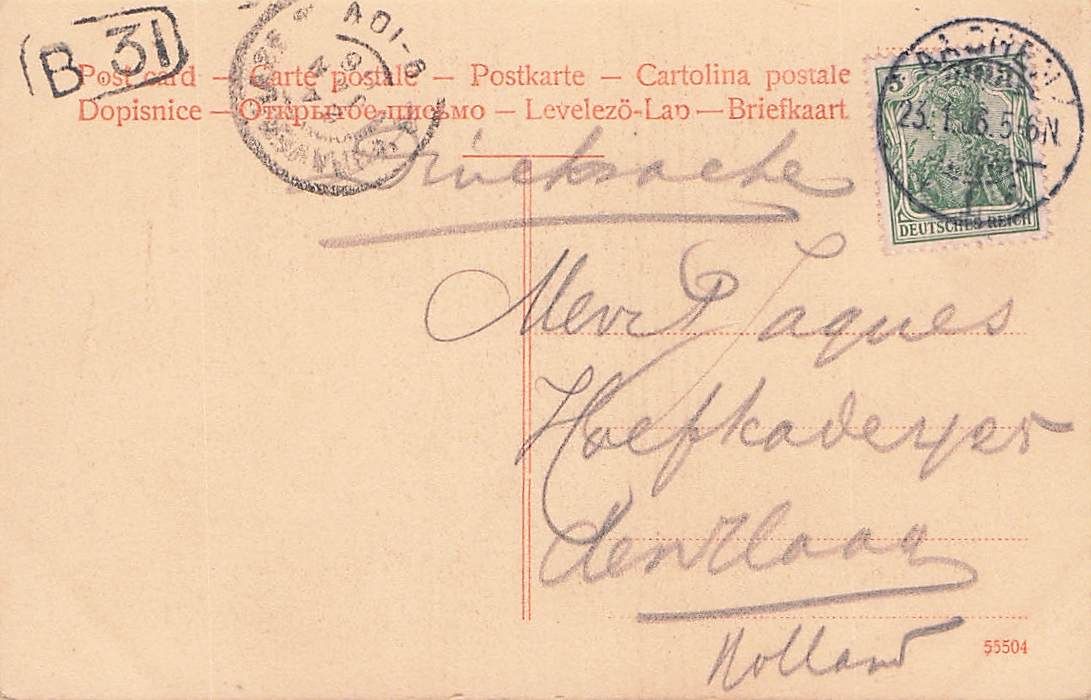 B 31
Post card – Carte postale – Postkarte – Cartolina postale
Dopisnice – Открытое-письмо – Levelezö-Lap – Briefkaart
AACHEN
5
23.1.06.5-6N
DEUTSCHES REICH
Drucksache
Mevr P Jaques
Hoefkade
den Haag
Holland
55504